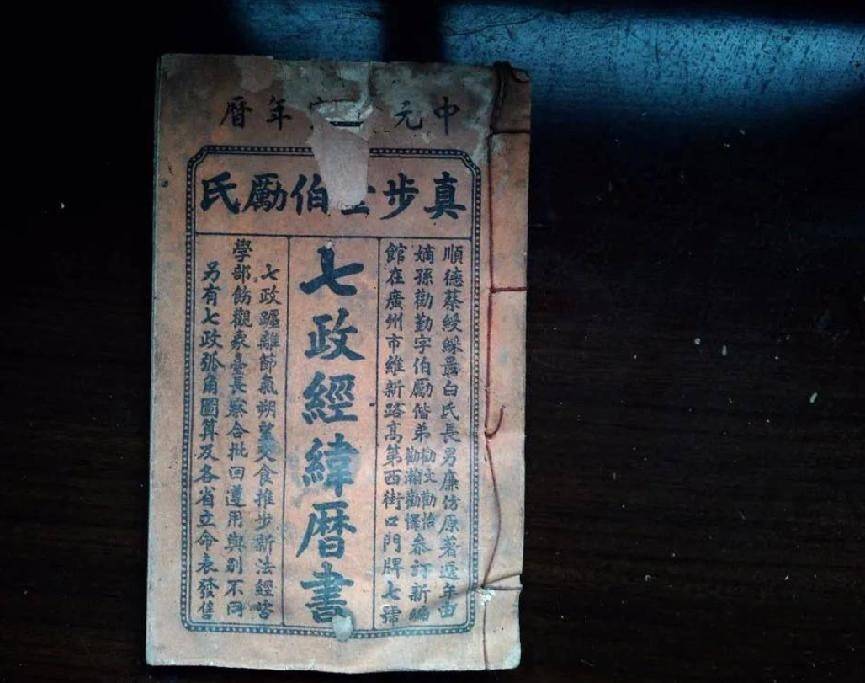 中元 年曆
真步堂伯勵氏
順德蔡綬綵最白氏長男廉仿原著逐年由
嫡孫勸勤字伯勵偕弟 參訂新編
館在廣州市維新路高第西街口門牌七號
七政經緯曆書
七政躔離節氣朔望交食推步新法經咨
學部飭觀象臺長察合批回遵用與別不同
另有七政弧角圖算及各省立命表發售